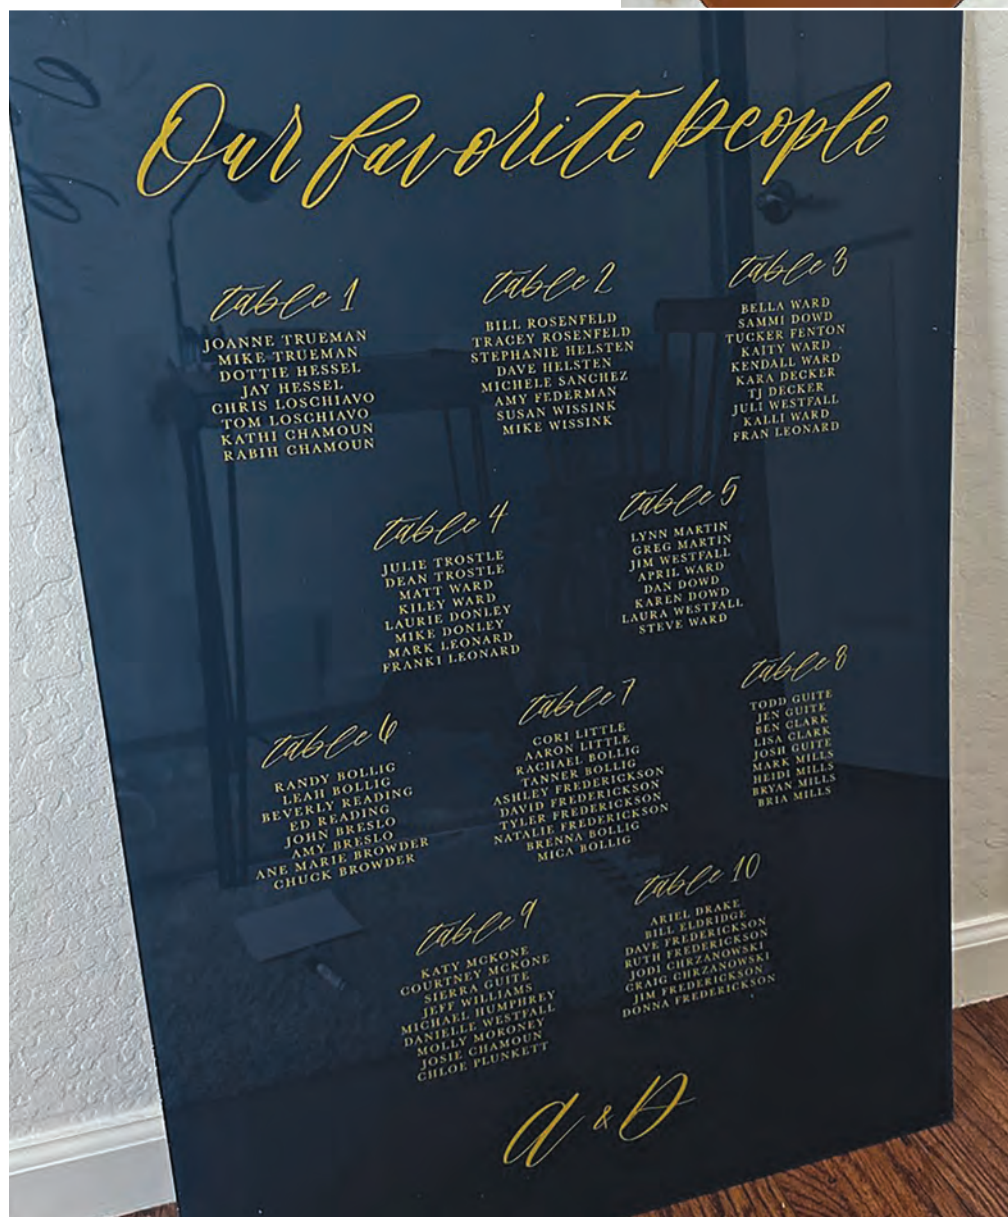 Our favorite people
table 1
JOANNE TRUEMAN
MIKE TRUEMAN
DOTTIE HESSEL
JAY HESSEL
CHRIS LOSCHIAVO
TOM LOSCHIAVO
KATHI CHAMOUN
RABIH CHAMOUN
table 2
BILL ROSENFELD
TRACEY ROSENFELD
STEPHANIE HELSTEN
DAVE HELSTEN
MICHELE SANCHEZ
AMY FEDERMAN
SUSAN WISSINK
MIKE WISSINK
table 3
BELLA WARD
SAMMI DOWD
TUCKER FENTON
KAITY WARD
KENDALL WARD
KARA DECKER
TJ DECKER
JULI WESTFALL
KALLI WARD
FRAN LEONARD
table 4
JULIE TROSTLE
DEAN TROSTLE
MATT WARD
KILEY WARD
LAURIE DONLEY
MIKE DONLEY
MARK LEONARD
FRANKI LEONARD
table 5
LYNN MARTIN
GREG MARTIN
JIM WESTFALL
APRIL WARD
DAN DOWD
KAREN DOWD
LAURA WESTFALL
STEVE WARD
table 6
RANDY BOLLIG
LEAH BOLLIG
BEVERLY READING
ED READING
JOHN BRESLO
AMY BRESLO
ANE MARIE BROWDER
CHUCK BROWDER
table 7
CORI LITTLE
AARON LITTLE
RACHAEL BOLLIG
TANNER BOLLIG
ASHLEY FREDERICKSON
DAVID FREDERICKSON
TYLER FREDERICKSON
NATALIE FREDERICKSON
BRENNA BOLLIG
MICA BOLLIG
table 8
TODD GUITE
JEN GUITE
BEN CLARK
LISA CLARK
JOSH GUITE
MARK MILLS
HEIDI MILLS
BRYAN MILLS
BRIA MILLS
table 9
KATY MCKONE
COURTNEY MCKONE
SIERRA GUITE
JEFF WILLIAMS
MICHAEL HUMPHREY
DANIELLE WESTFALL
MOLLY MORONEY
JOSIE CHAMOUN
CHLOE PLUNKETT
table 10
ARIEL DRAKE
BILL ELDRIDGE
DAVE FREDERICKSON
RUTH FREDERICKSON
JODI CHRZANOWSKI
CRAIG CHRZANOWSKI
JIM FREDERICKSON
DONNA FREDERICKSON
a & D